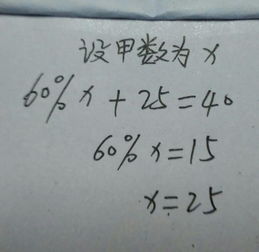 设甲数为x
60%x+25=40
60%x=15
x=25